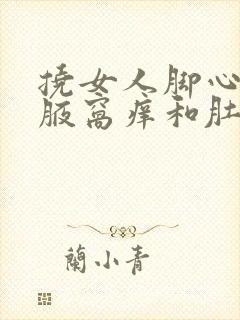 撓女人脚心
腋窩痒和肚
蘭小青